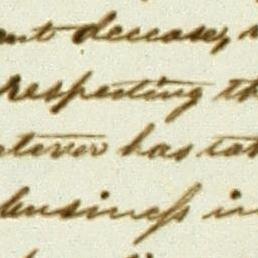 ent decease,
respecting th
has tak
business in